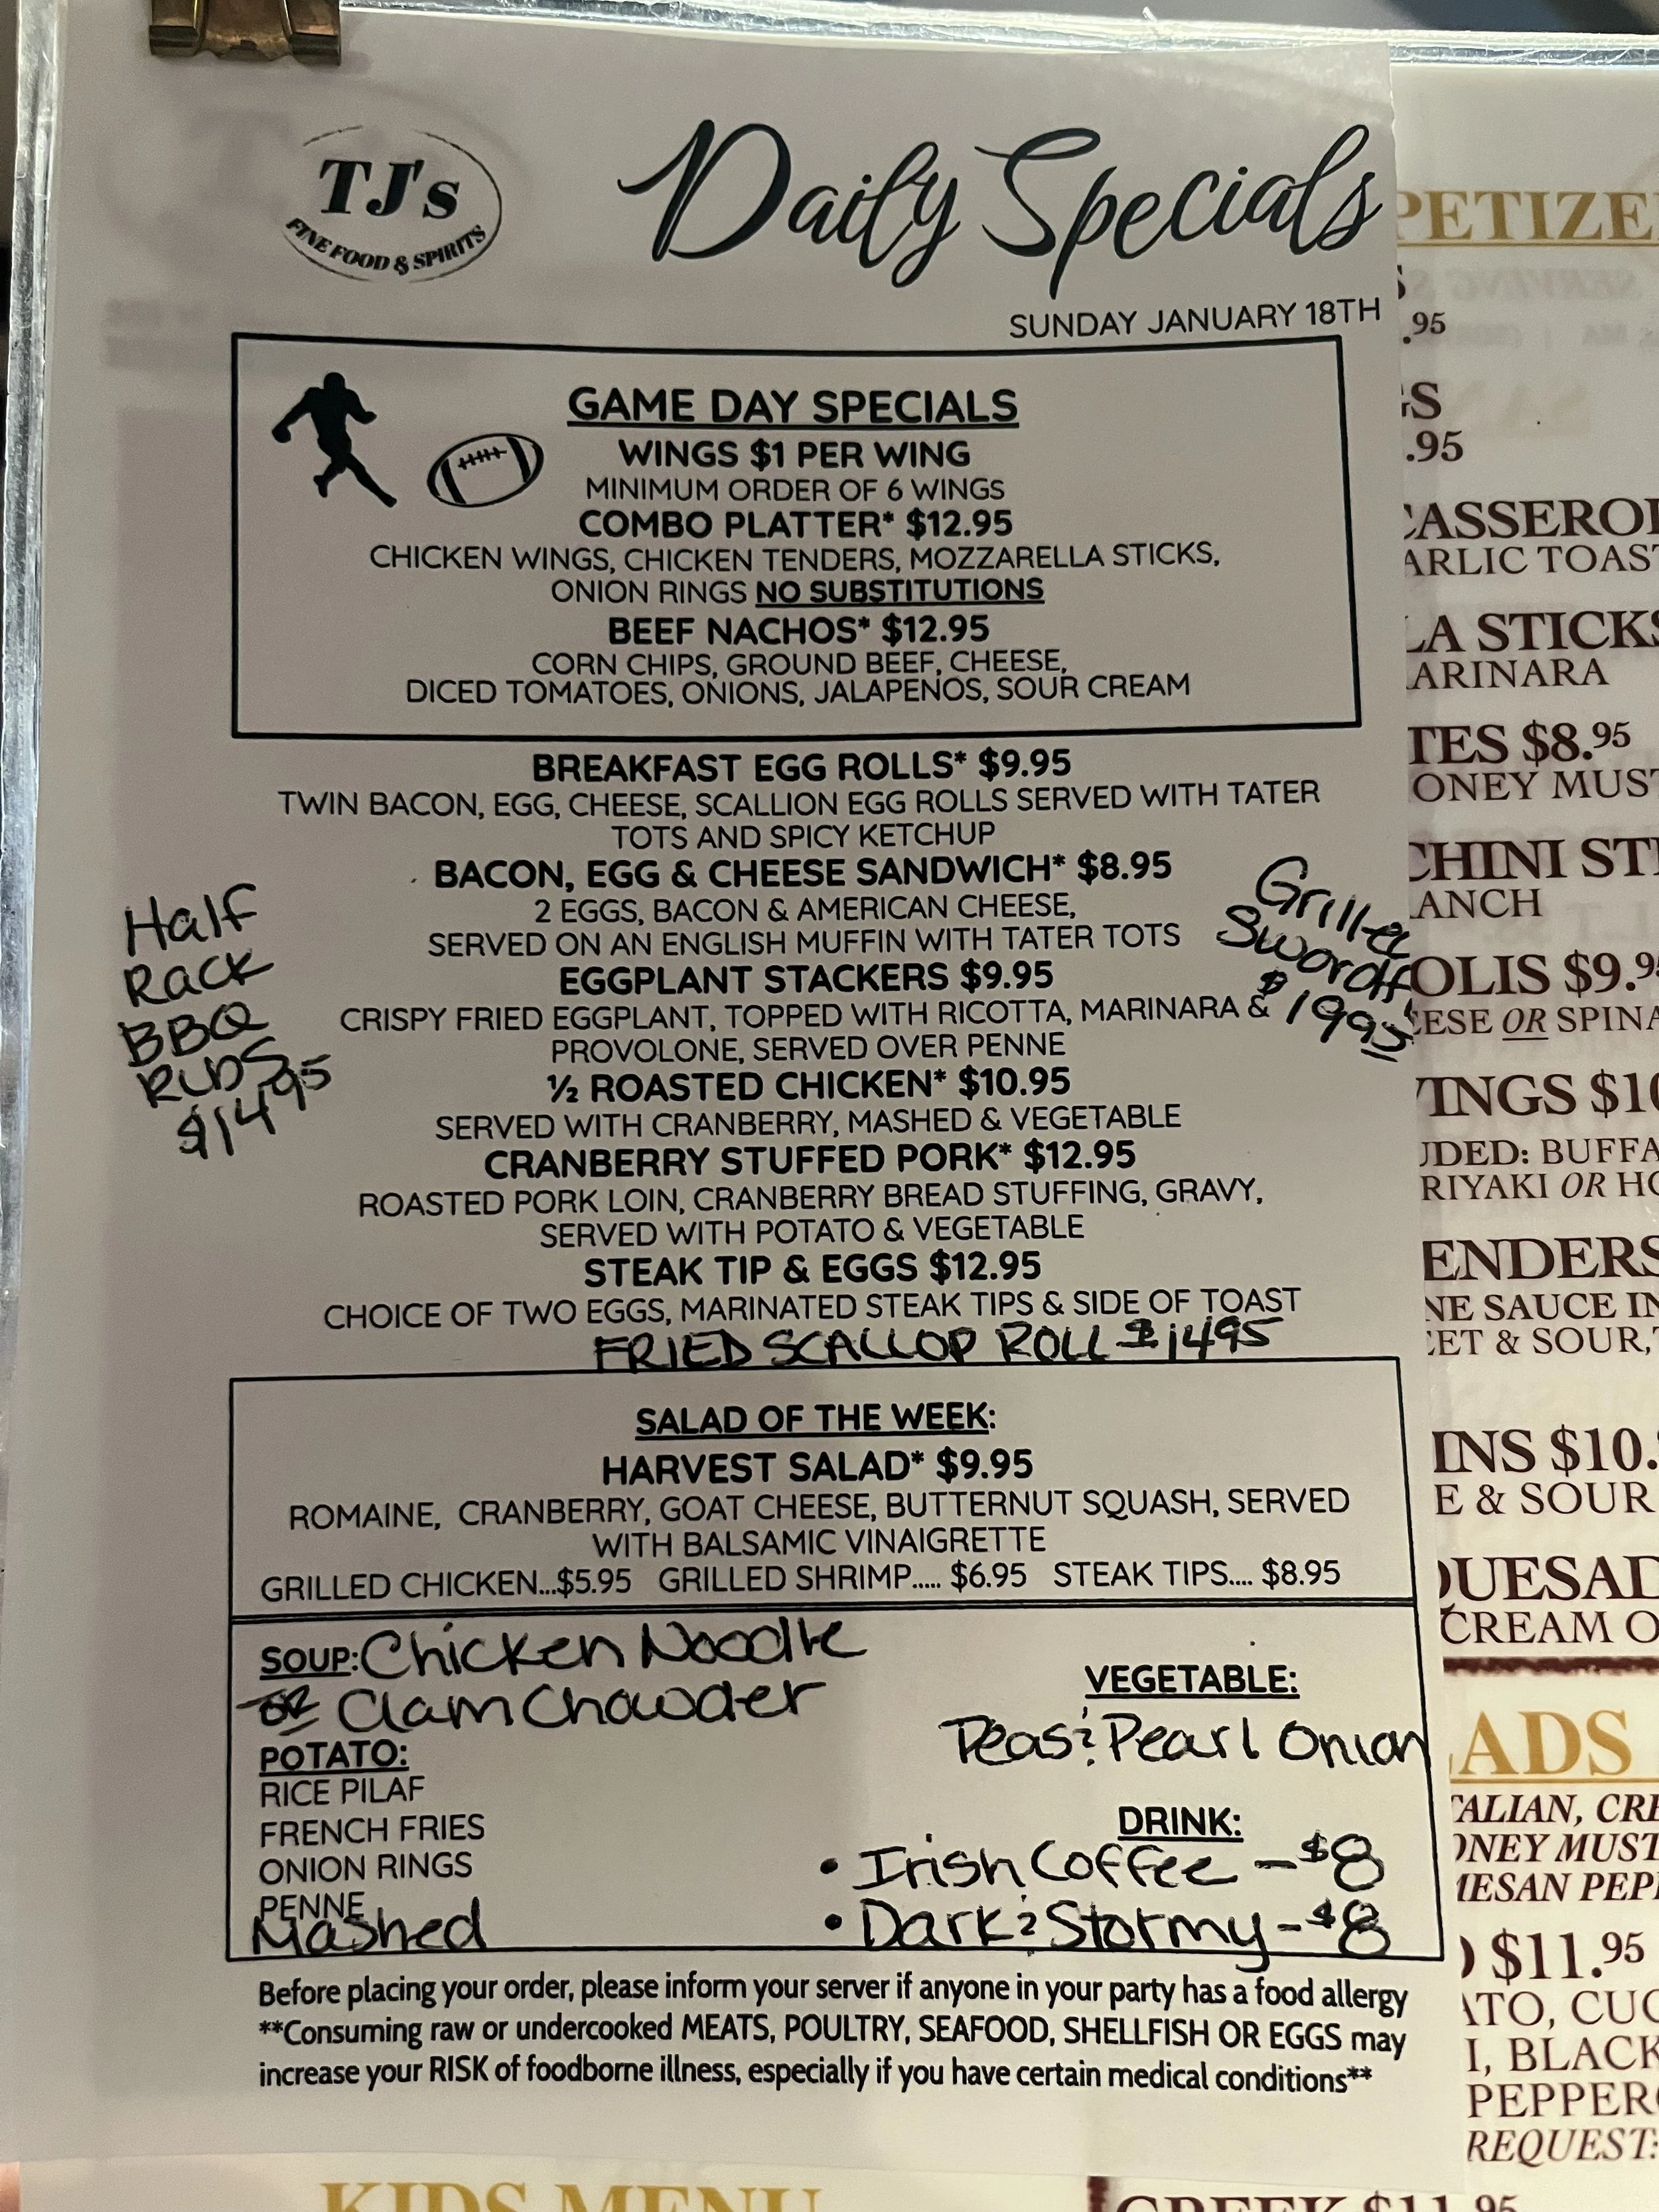 TJ's
FINE FOOD & SPIRITS
Daily Specials
SUNDAY JANUARY 18TH
GAME DAY SPECIALS
WINGS $1 PER WING
MINIMUM ORDER OF 6 WINGS
COMBO PLATTER* $12.95
CHICKEN WINGS, CHICKEN TENDERS, MOZZARELLA STICKS,
ONION RINGS NO SUBSTITUTIONS
BEEF NACHOS* $12.95
CORN CHIPS, GROUND BEEF, CHEESE,
DICED TOMATOES, ONIONS, JALAPENOS, SOUR CREAM
BREAKFAST EGG ROLLS* $9.95
TWIN BACON, EGG, CHEESE, SCALLION EGG ROLLS SERVED WITH TATER
TOTS AND SPICY KETCHUP
BACON, EGG & CHEESE SANDWICH* $8.95
2 EGGS, BACON & AMERICAN CHEESE,
SERVED ON AN ENGLISH MUFFIN WITH TATER TOTS
EGGPLANT STACKERS $9.95
CRISPY FRIED EGGPLANT, TOPPED WITH RICOTTA, MARINARA &
PROVOLONE, SERVED OVER PENNE
½ ROASTED CHICKEN* $10.95
SERVED WITH CRANBERRY, MASHED & VEGETABLE
CRANBERRY STUFFED PORK* $12.95
ROASTED PORK LOIN, CRANBERRY BREAD STUFFING, GRAVY,
SERVED WITH POTATO & VEGETABLE
STEAK TIP & EGGS $12.95
CHOICE OF TWO EGGS, MARINATED STEAK TIPS & SIDE OF TOAST
FRIED SCALLOP ROLL $1495
Half
Rack
BBQ
Ribs
$1495
Grilled
Swordf
$1995
SALAD OF THE WEEK:
HARVEST SALAD* $9.95
ROMAINE, CRANBERRY, GOAT CHEESE, BUTTERNUT SQUASH, SERVED
WITH BALSAMIC VINAIGRETTE
GRILLED CHICKEN...$5.95 GRILLED SHRIMP..... $6.95 STEAK TIPS.... $8.95
SOUP: Chicken Noodle
or Clam Chowder
POTATO:
RICE PILAF
FRENCH FRIES
ONION RINGS
PENNE
Mashed
VEGETABLE:
Peas & Pearl Onion
DRINK:
• Irish Coffee - $8
• Dark & Stormy - $8
Before placing your order, please inform your server if anyone in your party has a food allergy
**Consuming raw or undercooked MEATS, POULTRY, SEAFOOD, SHELLFISH OR EGGS may
increase your RISK of foodborne illness, especially if you have certain medical conditions**
PETIZE
S
.95
GS
.95
CASSEROL
ARLIC TOAST
LA STICKS
ARINARA
TES $8.95
ONEY MUST
CHINI STI
ANCH
OLIS $9.95
EESE OR SPINA
INGS $10
UDED: BUFFA
RIYAKI OR HO
ENDERS
NE SAUCE IN
EET & SOUR,
INS $10.
E & SOUR
QUESAD
CREAM O
ADS
TALIAN, CRE
ONEY MUST
MESAN PEPP
) $11.95
ATO, CUC
I, BLACK
PEPPER
REQUEST:
KIDS MENU
GREEK $11.95